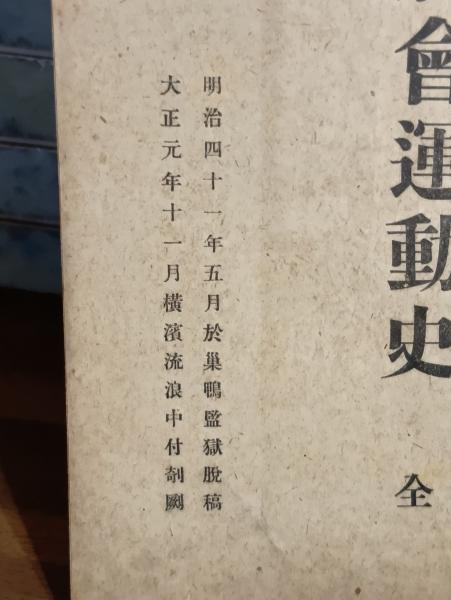 會運動史 全
明治四十一年五月於巢鴨監獄脫稿
大正元年十一月橫濱流浪中付剞劂